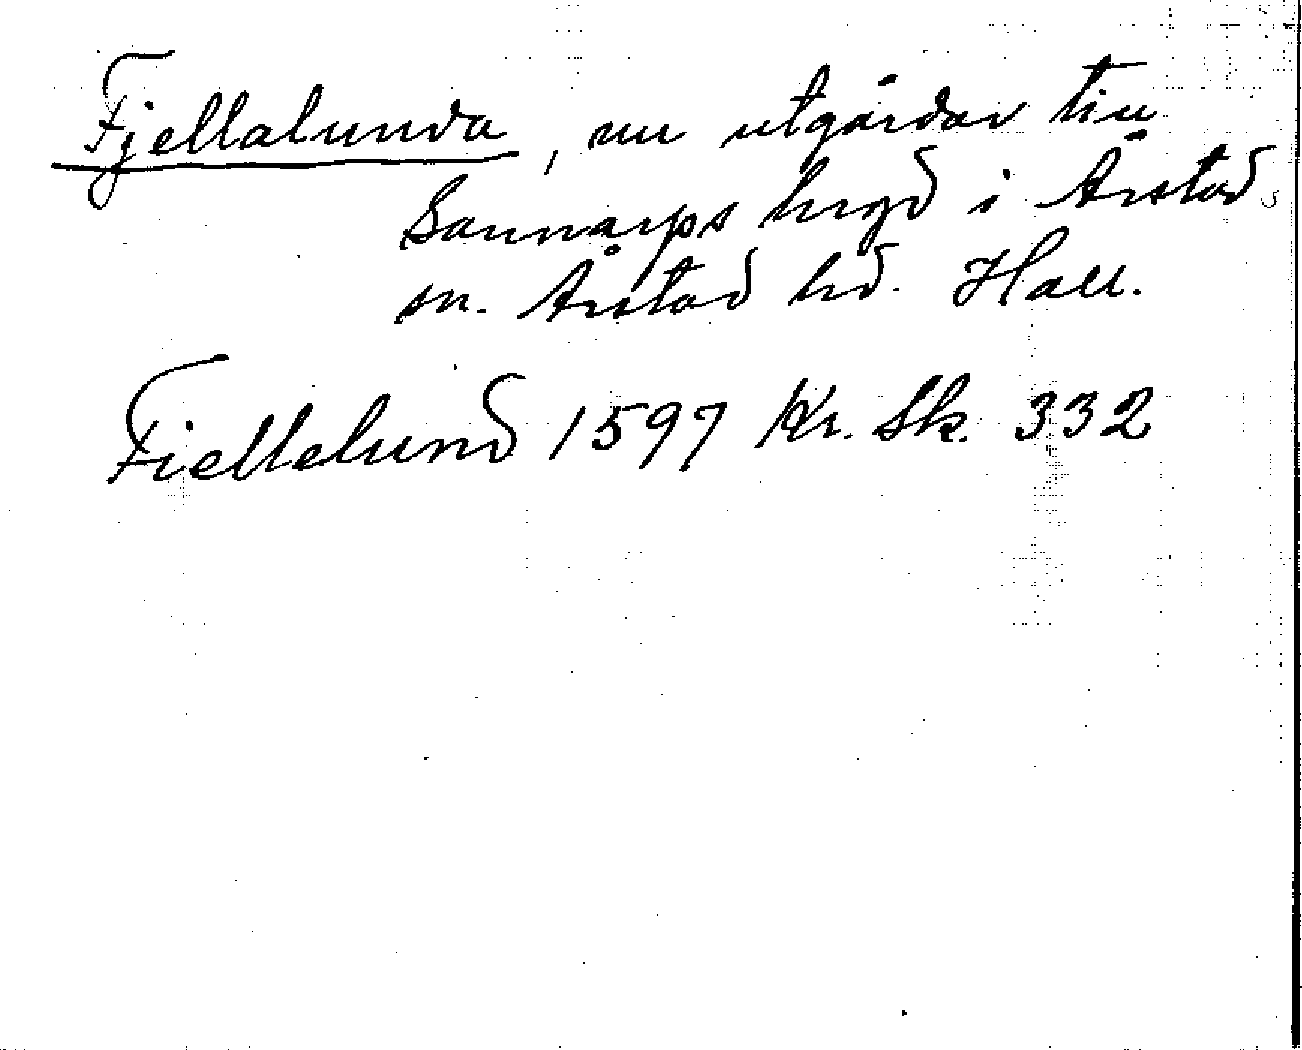 Fjellalunda, nu utgårdar till
Sannarps bryd i Årstad
sn. Årstad hd. Hall.
Fiellelund 1597 Kr. Sk. 332